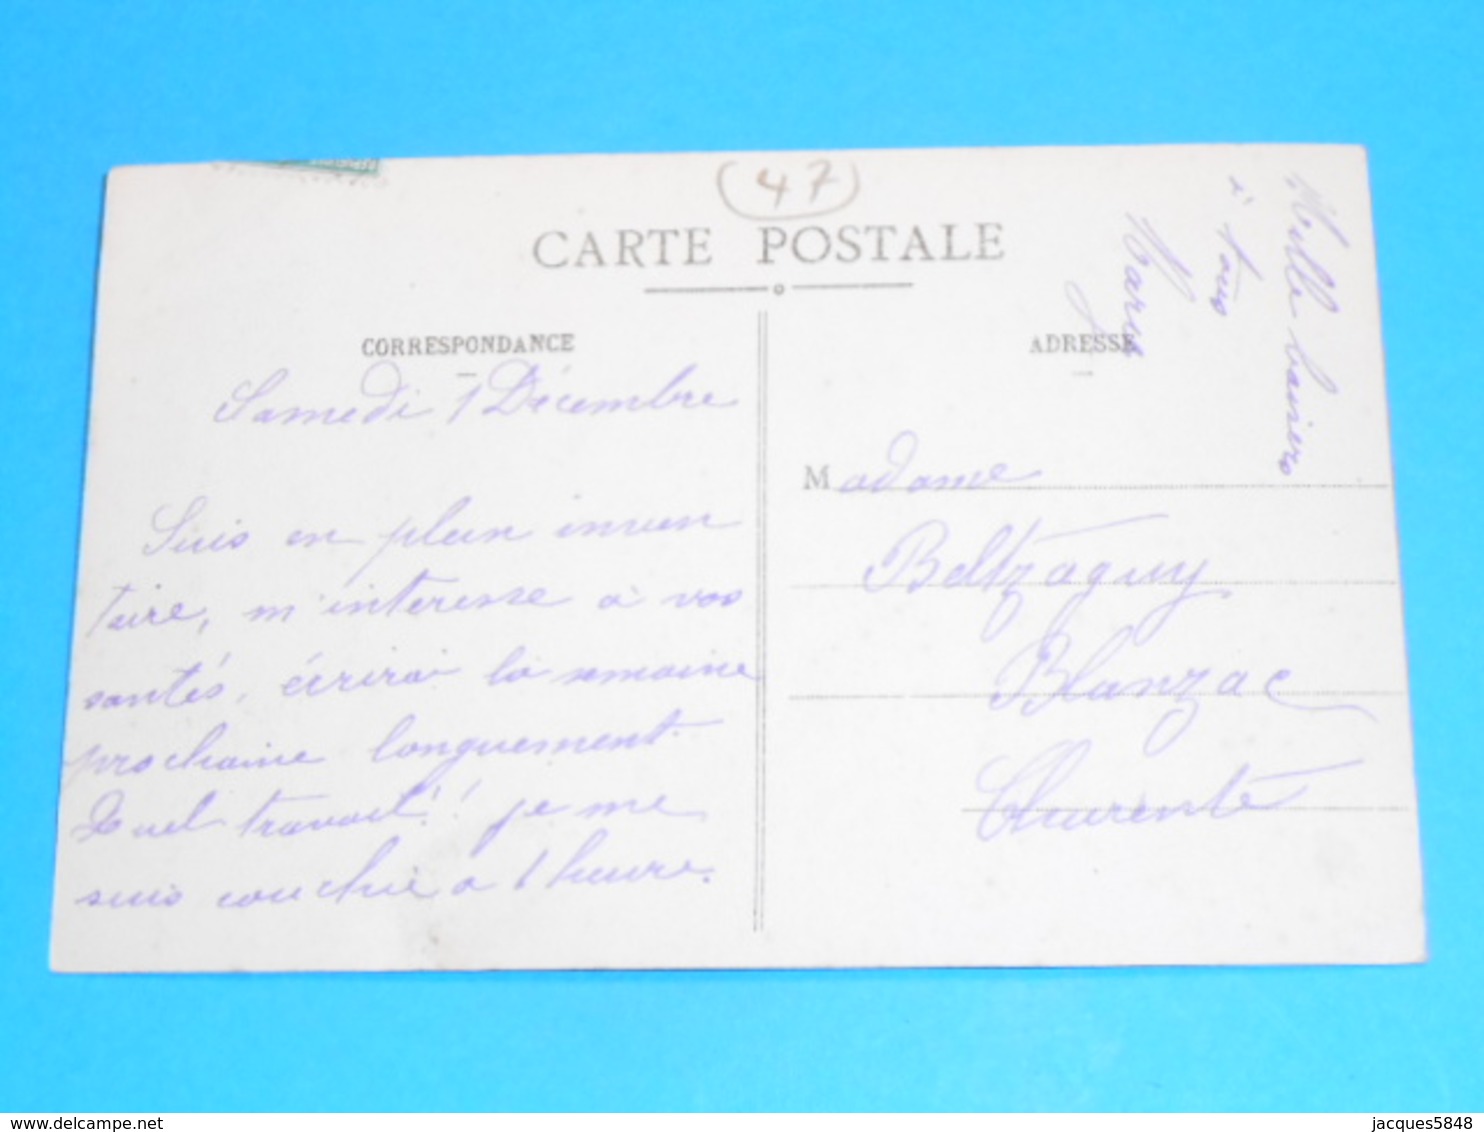 (47)
CARTE POSTALE
CORRESPONDANCE
Samedi 1 Décembre
Suis en plein inven
taire, m'interesse à vos
santés, écrirai la semaine
prochaine longuement
Quel travail!! je me
suis couchée à 1 heure.
ADRESSE
Madame
Beltzaguy
Blanzac
Charente
Mille baisers
à tous
www.delcampe.net
jacques5848